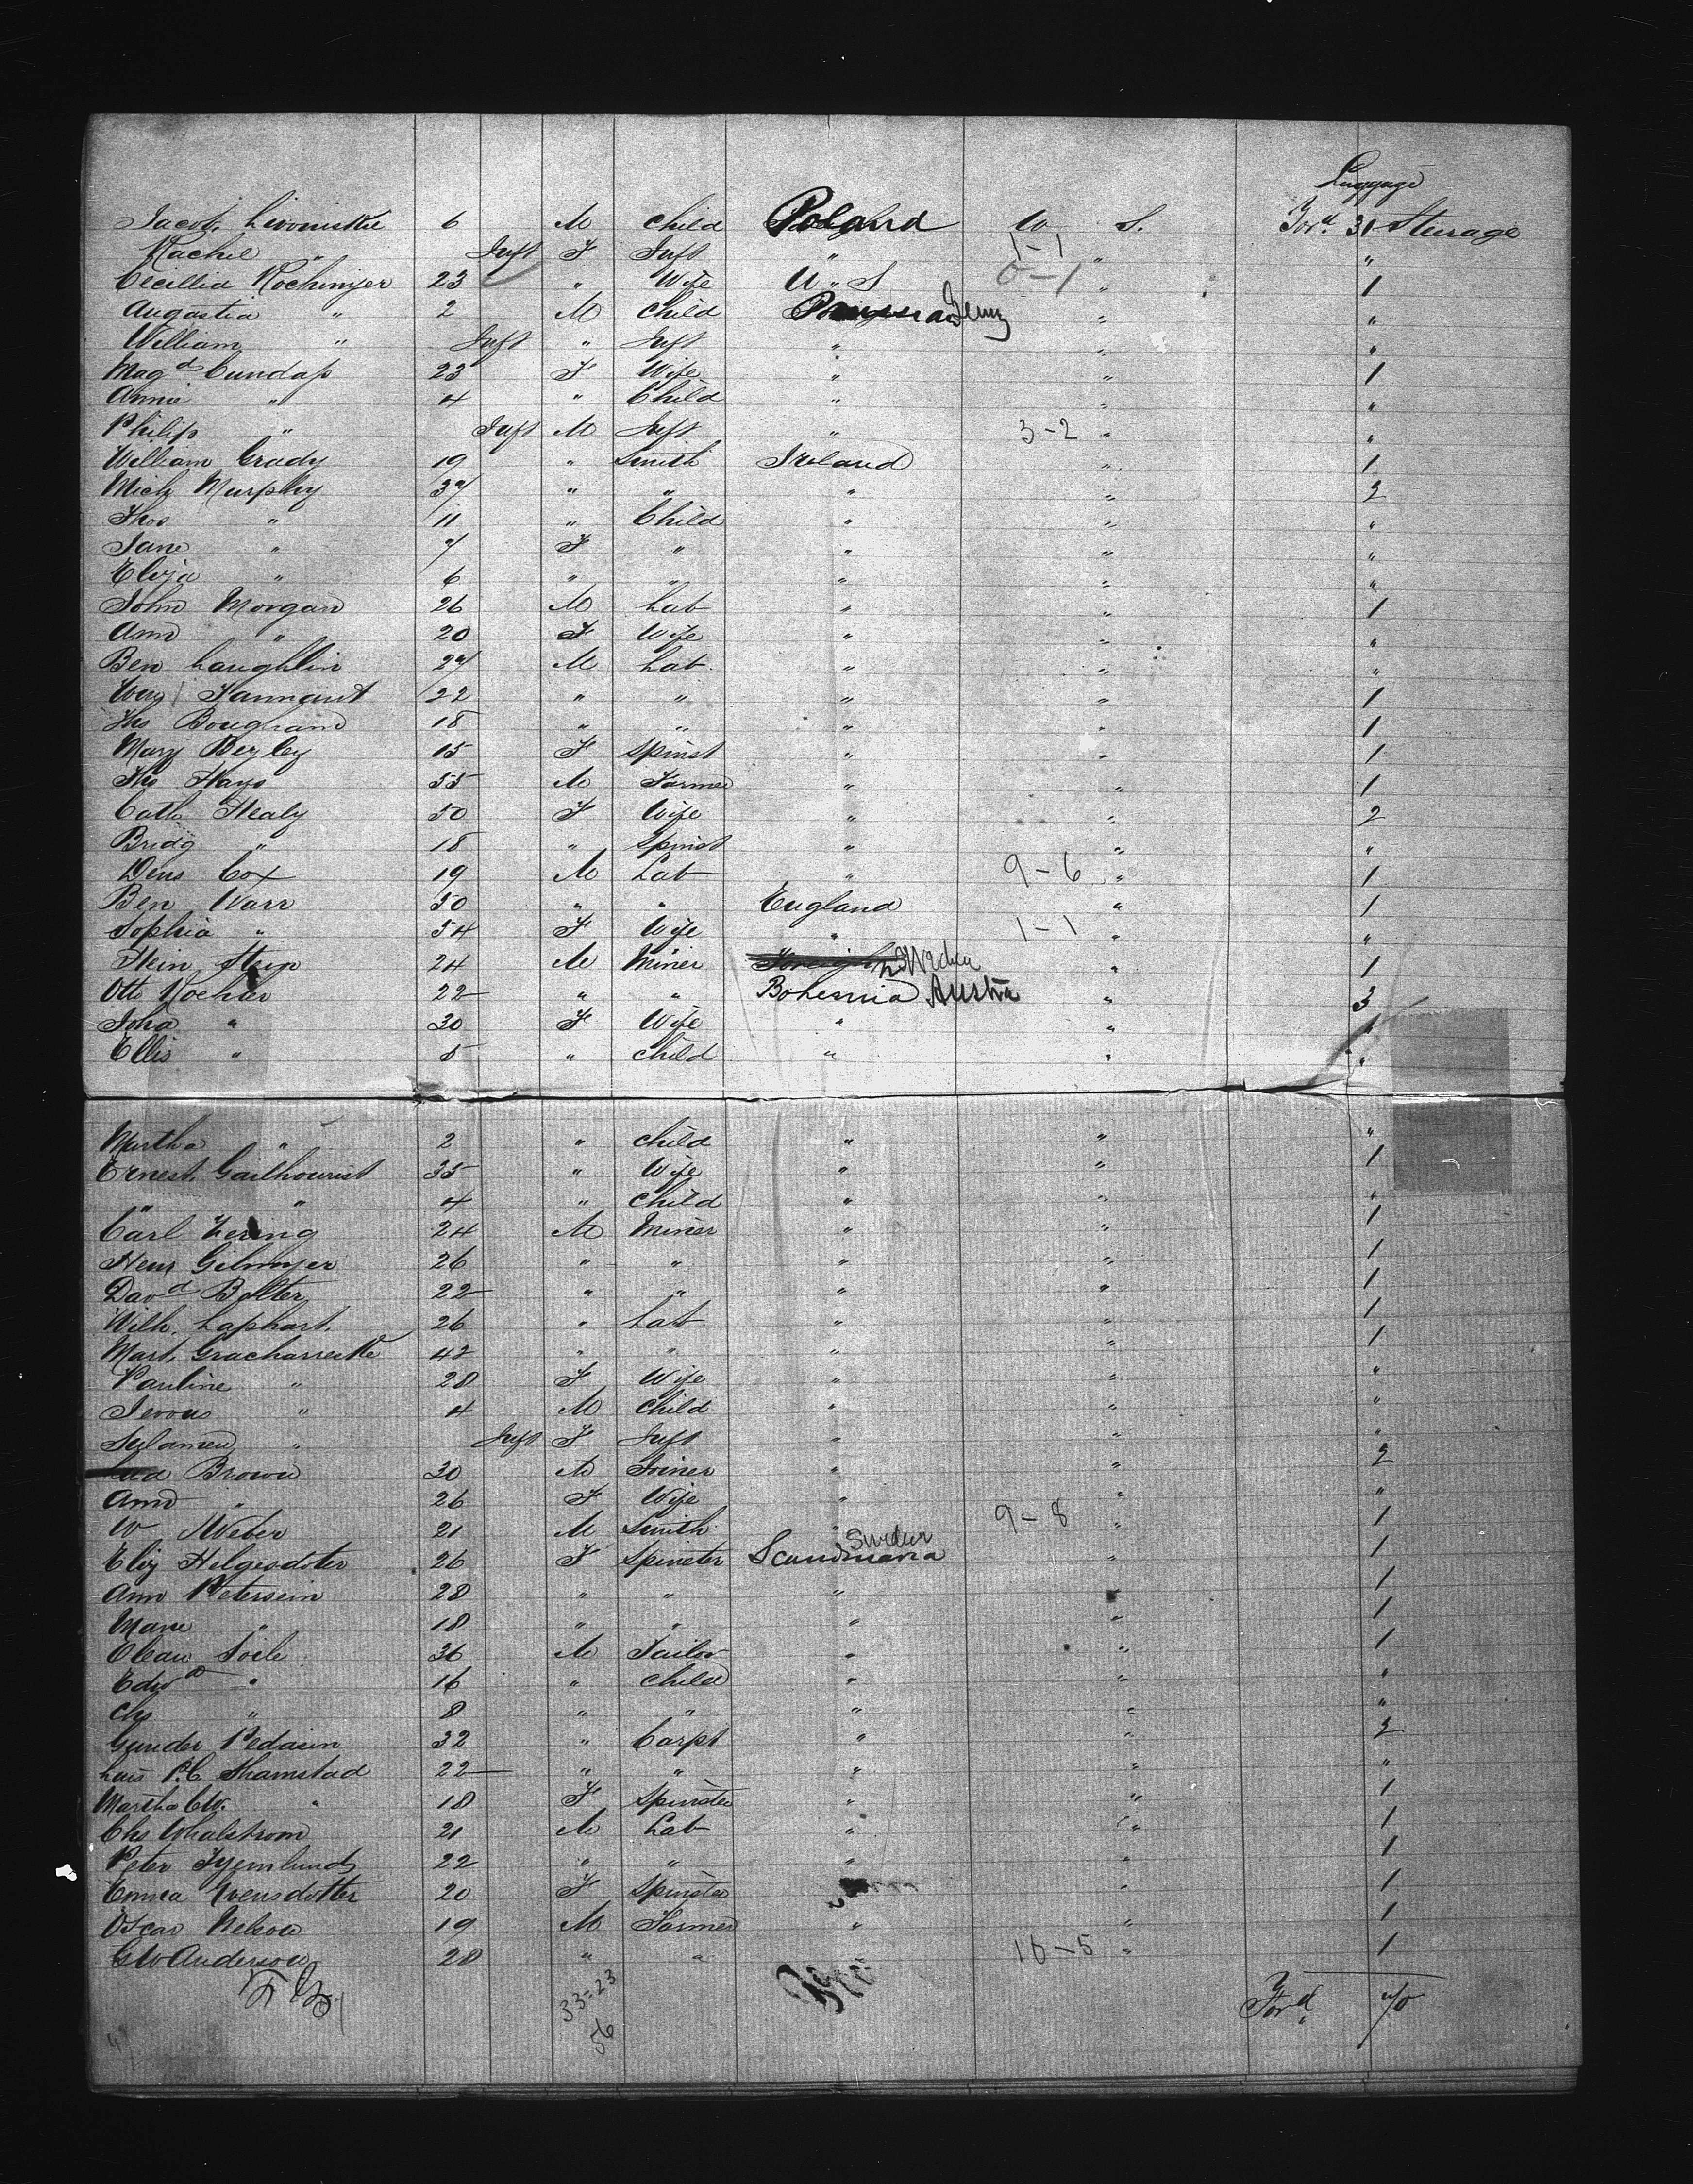 Luggage
Jacob Livoniskie 6 M Child Poland U S. For.d 31 Steerage
Rachel " Inft F Inft " 1-1 " "
Cecillia Kochinger 23 " Wife U " S 0-1 " 1
Augastia " 2 M Child Germy " "
William " Inft " Inft " " "
Mag.d Cundap 23 F Wife " " 1
Annie " 4 " Child " " "
Philip " Inft M Inft " 3-2 " "
William Grady 19 " Smith Ireland " 1
Mich Murphy 37 " " " " 2
Thos " 11 " Child " " "
Jane " 7 F " " " "
Eliza " 6 " " " " "
John Morgan 26 M Lab " " 1
Ann " 20 F Wife " " "
Ben Laughlin 27 M Lab. " " "
Tannant 22 " " " " 1
Ths Boughand 18 " " " " 1
Mary Begley 15 F Spinst " " 1
Ths Hays 55 M Farmer " " 1
Cath. Healy 50 F Wife " " 2
Bridg " 18 " Spinst " " "
Dens Cox 19 M Lab " 9-6 " 1
Ben Warr 50 " " England " 1
Sophia " 54 F Wife " 1-1 " "
24 M Miner Sweden " 1
Otto Kochler 22 " " Bohemia Austria " 3
Joha " 30 F Wife " " "
Ellis " 5 " Child " " "
Martha " 2 " Child " " "
Ernest. Gailhourist 35 " Wife " " 1
" " 4 " Child " " "
Carl 24 M Miner " " 1
Henr Gilmyer 26 " " " " 1
Dav.d Belter 22 " " " " 1
Wilh. Laphart. 26 " Lab " " 1
Mart. Gracharseette 42 " " " " 1
Pauline " 28 F Wife " " "
" 4 M Child " " "
Sylamen " Inft F Inft " " "
Brown 30 M Joiner " " 2
Ann " 26 F Wife " " "
W Weber 21 M Smith " 9-8 " 1
Eliz Helgesdotter 26 F Spinster Scandinavia Sweden " 1
Ann Petersein 28 " " " " 1
Marie " 18 " " " " 1
Olean Soele 36 M Tailor " " 1
Edw.d " 16 " Child " " "
Chs " 8 " " " " "
Gunder Pedasen 32 " Carpt " " 2
Lars P.C. Thamstad 22 " " " " "
Martha CW. " 18 F Spinster " " 1
Chs Whalstroom 21 M Lab " " 1
Peter Tjernlunds 22 " " " " 1
Emma Svensdotter 20 F Spinster " " 1
Oscar Nelson 19 M Farmer " " 1
G W Anderson 28 " " 10-5 " 1
33=23
56
For.d 70